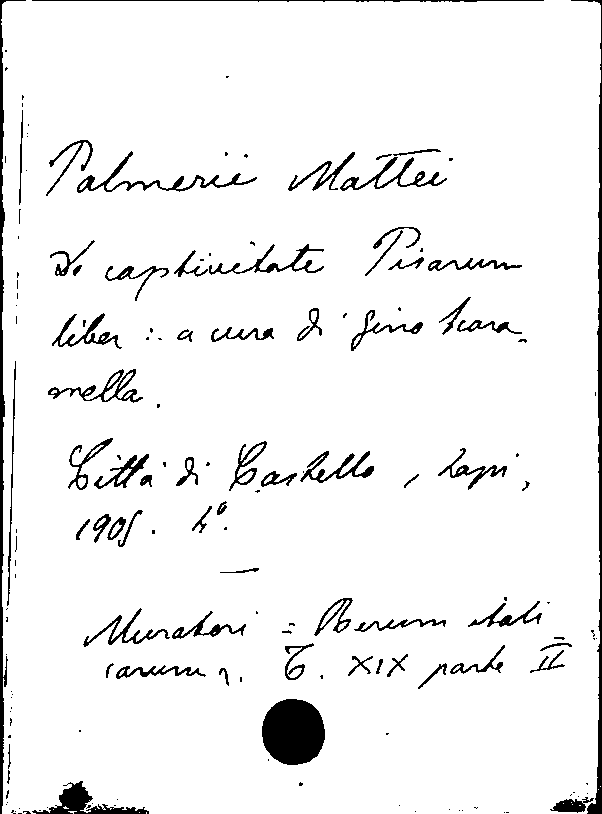 Palmerii Mattei
De captivitate Pisarum
liber : a cura di Gino Scara-
mella.
Città di Castello, Lapi,
1905. 4°.
—
Muratori = Rerum itali=
carum T. XIX parte II